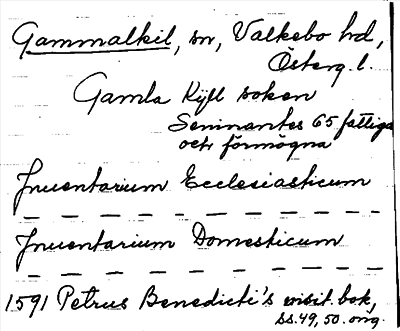 Gammalkil, sn, Valkebo hd,
Österg. l.
Gamla Kyll soken
Seminantes 65 fattiga
och förmögna
Inventarium Ecclesiasticum
Inventarium Domesticum
1591 Petrus Benedicti's visit. bok,
ss. 49, 50. orig.